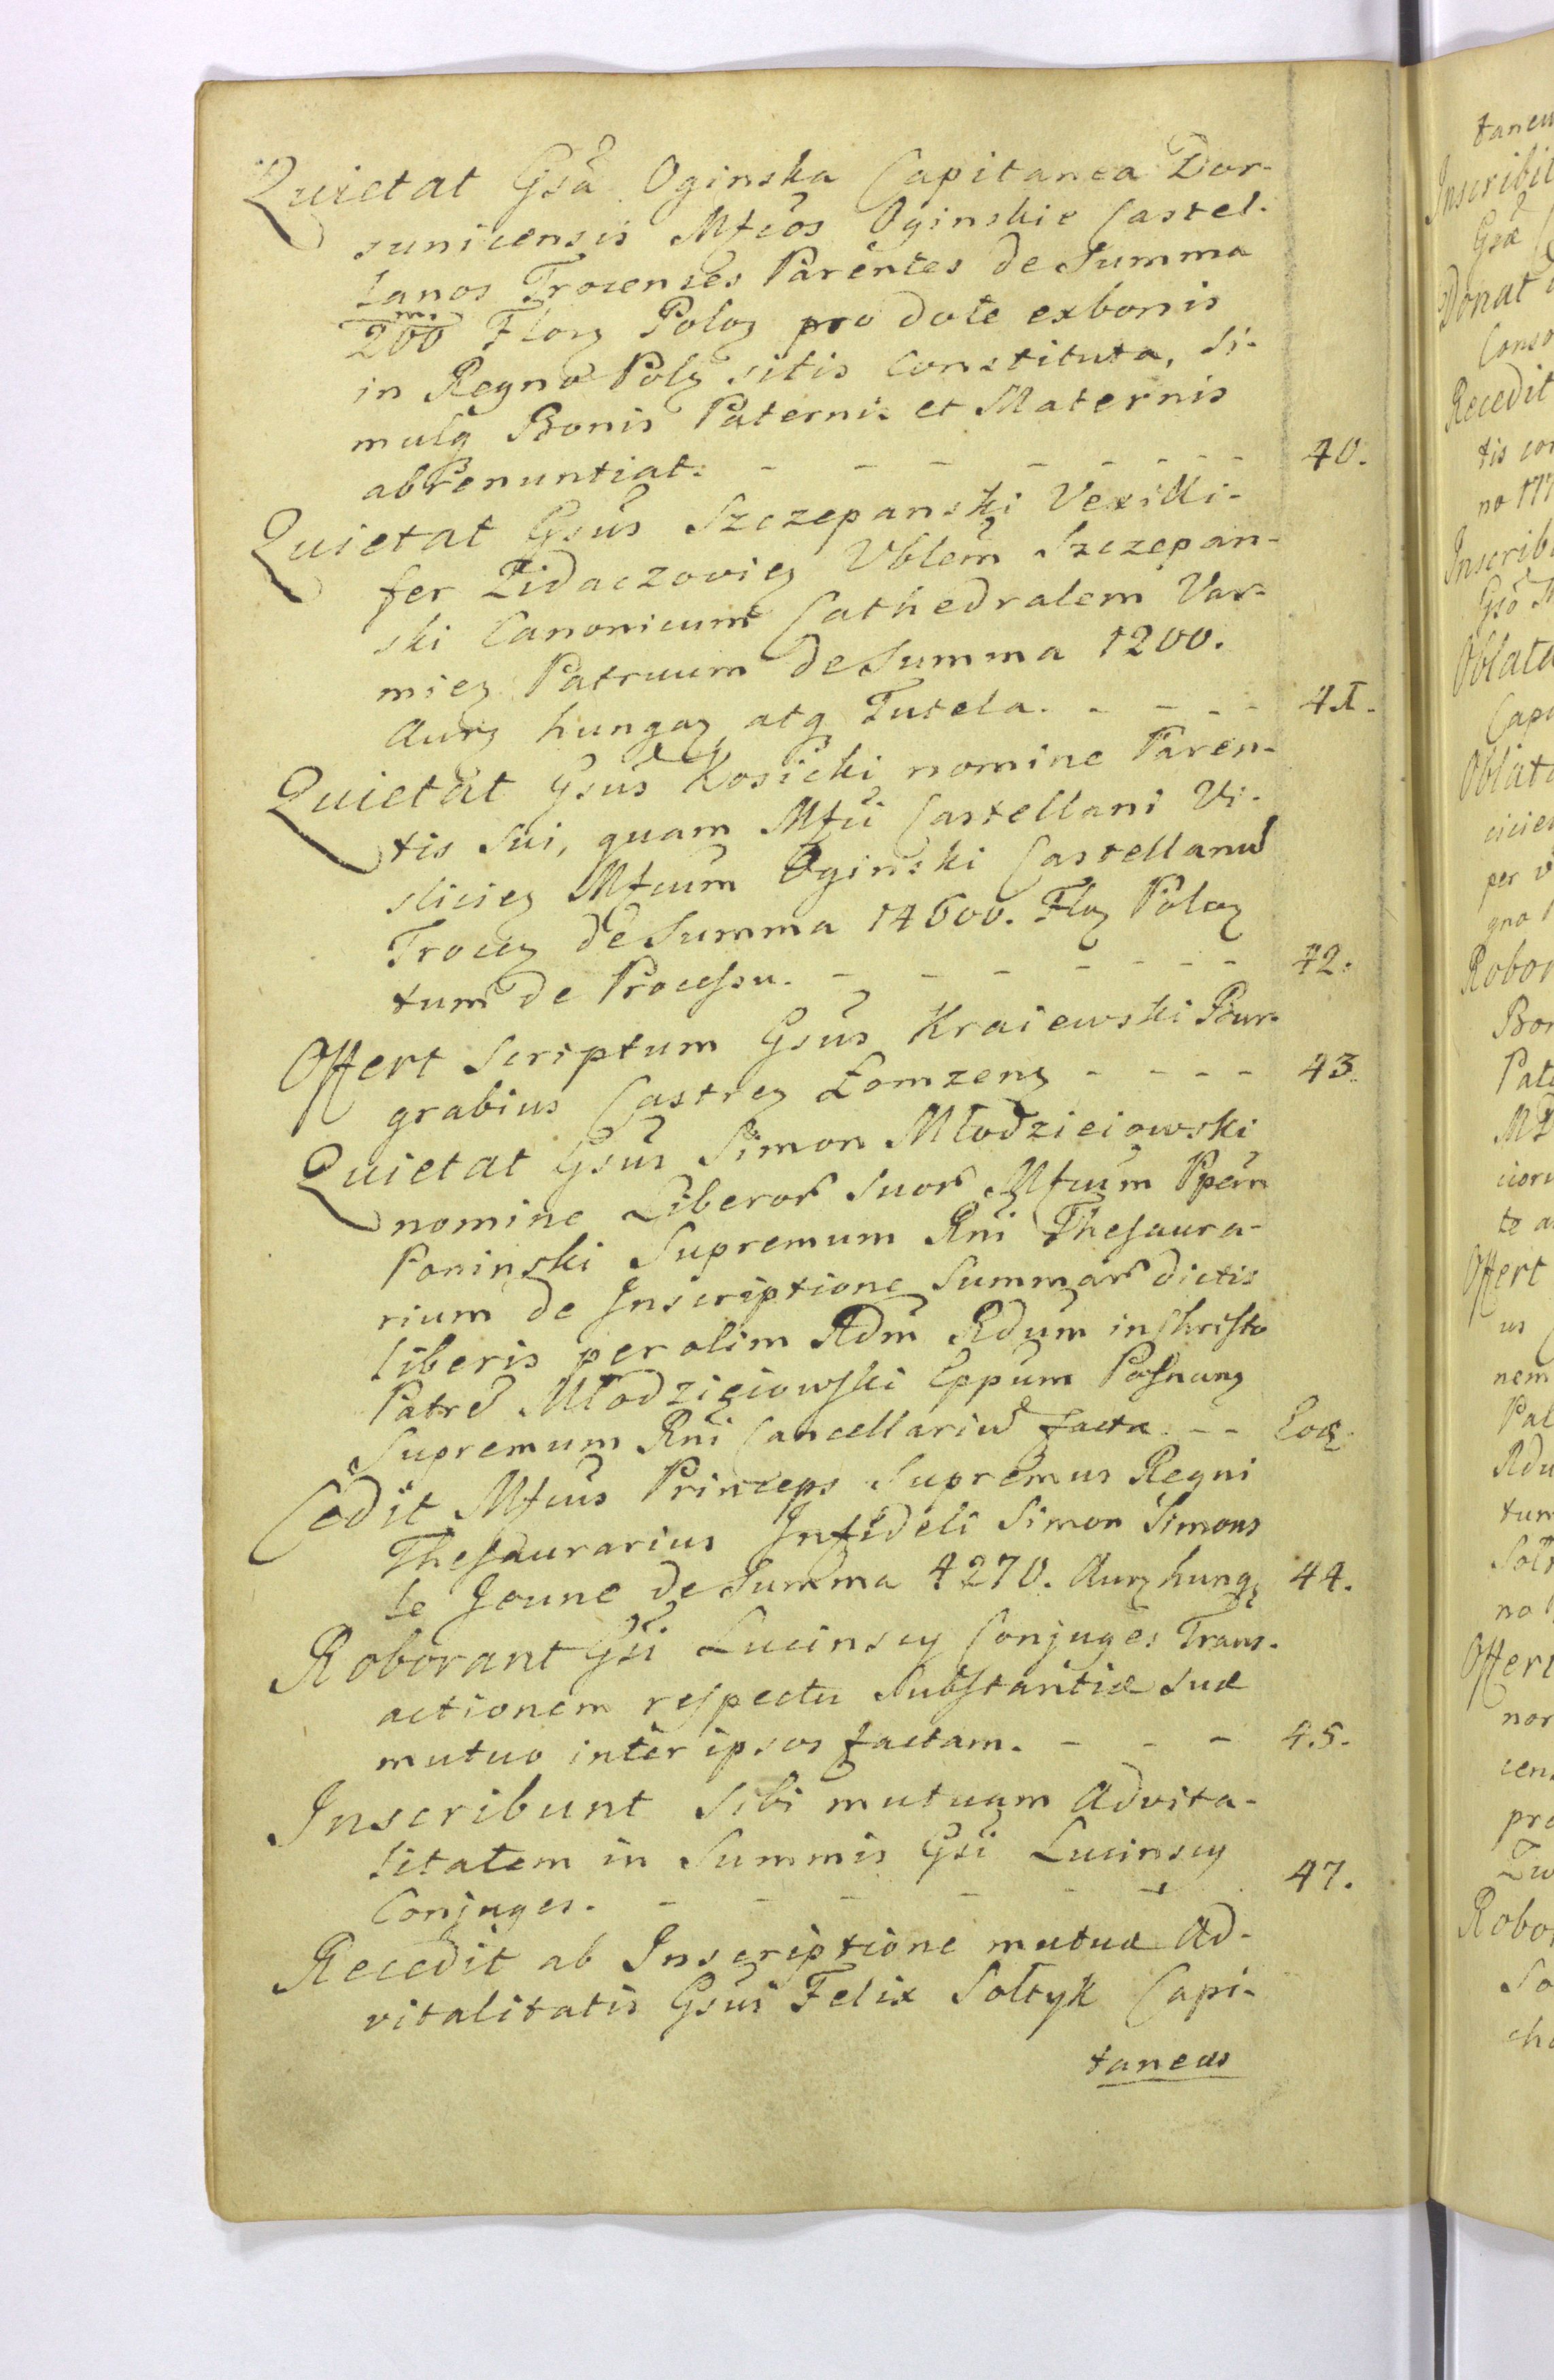 Quietat Gsa Oginska Capitanea Dor-
sunicensis Mfcos Oginskie Castel-
lanos Trocenses Parentes de Summa
200 m. Flor Polo pro dote ex bonis
in Regno Pol sitis Constituta, Si-
mulq Bonis Paternis et Maternis
abrenuntiat. - - - - - - - - 40.
Quietat Gsus Szczepanski Vexilli-
fer Zidaczovie Vblem Szczepan-
ski Canonicum Cathedralem Var-
mie Patruum de Summa 1200.
Aur hunga atq Tutela. - - - - 41.
Quietat Gsus Kosicki nomine Paren-
tis Sui, quam Mfci Castellani Vi-
slicie Mfcum Oginski Castellanu
Troce de Summa 14600. Flo Polo
tum de Processu. - - - - - - - 42.
Offert Scriptum Gsus Kraiewski Bur-
grabius Castre Łomzen - - - - 43.
Quietat Gsus Simon Młodzieiowski
nomine Liberor Suor Mfcum Ppem
Poninski Supremum Rni Thesaura-
rium de Inscriptione Summar dictis
liberis per olim Adm Rdum in Christo
Patre Młodzieiowski Eppum Posnan
Supremum Rni Cancellariu facta. - - Eoq.
Cedit Mfcus Princeps Supremus Regni
Thesaurarius Infideli Simon Simons
le Jeune de Summa 4270. Aur hung 44.
Roborant Gsi Lucinscy Conjuges Trans-
actionem respectu Substantiæ suæ
mutuo inter ipsos factam. - - - 45.
Inscribunt Sibi mutuam Advita-
litatem in Summis Gsi Lucinscy
Conjuges. - - - - - - 47.
Recedit ab Inscriptione mutuæ Ad-
vitalitatis Gsus Felix Sołtyk Capi-
taneus
taneu
Inscribit
Gsæ
Donat
Conso
Recedit
tis con
no 177
Inscrib
Gso
Oblata
Capi
Oblata
per
gno
Robor
Bon
Pat
te a
Offert
us
nem
Pal
Rdu
tum
no
Offert
nor
cens
pro
Robor
So